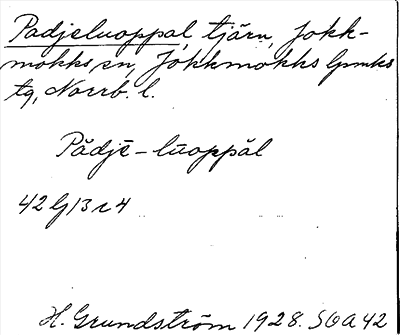 Padjeluoppal, tjärn, Jokk-
mokks sn, Jokkmokks lpmks
tg, Norrb. l.
Pădjē-lūoppăl
42 G 13 r 4
H. Grundström 1928. SOA 42